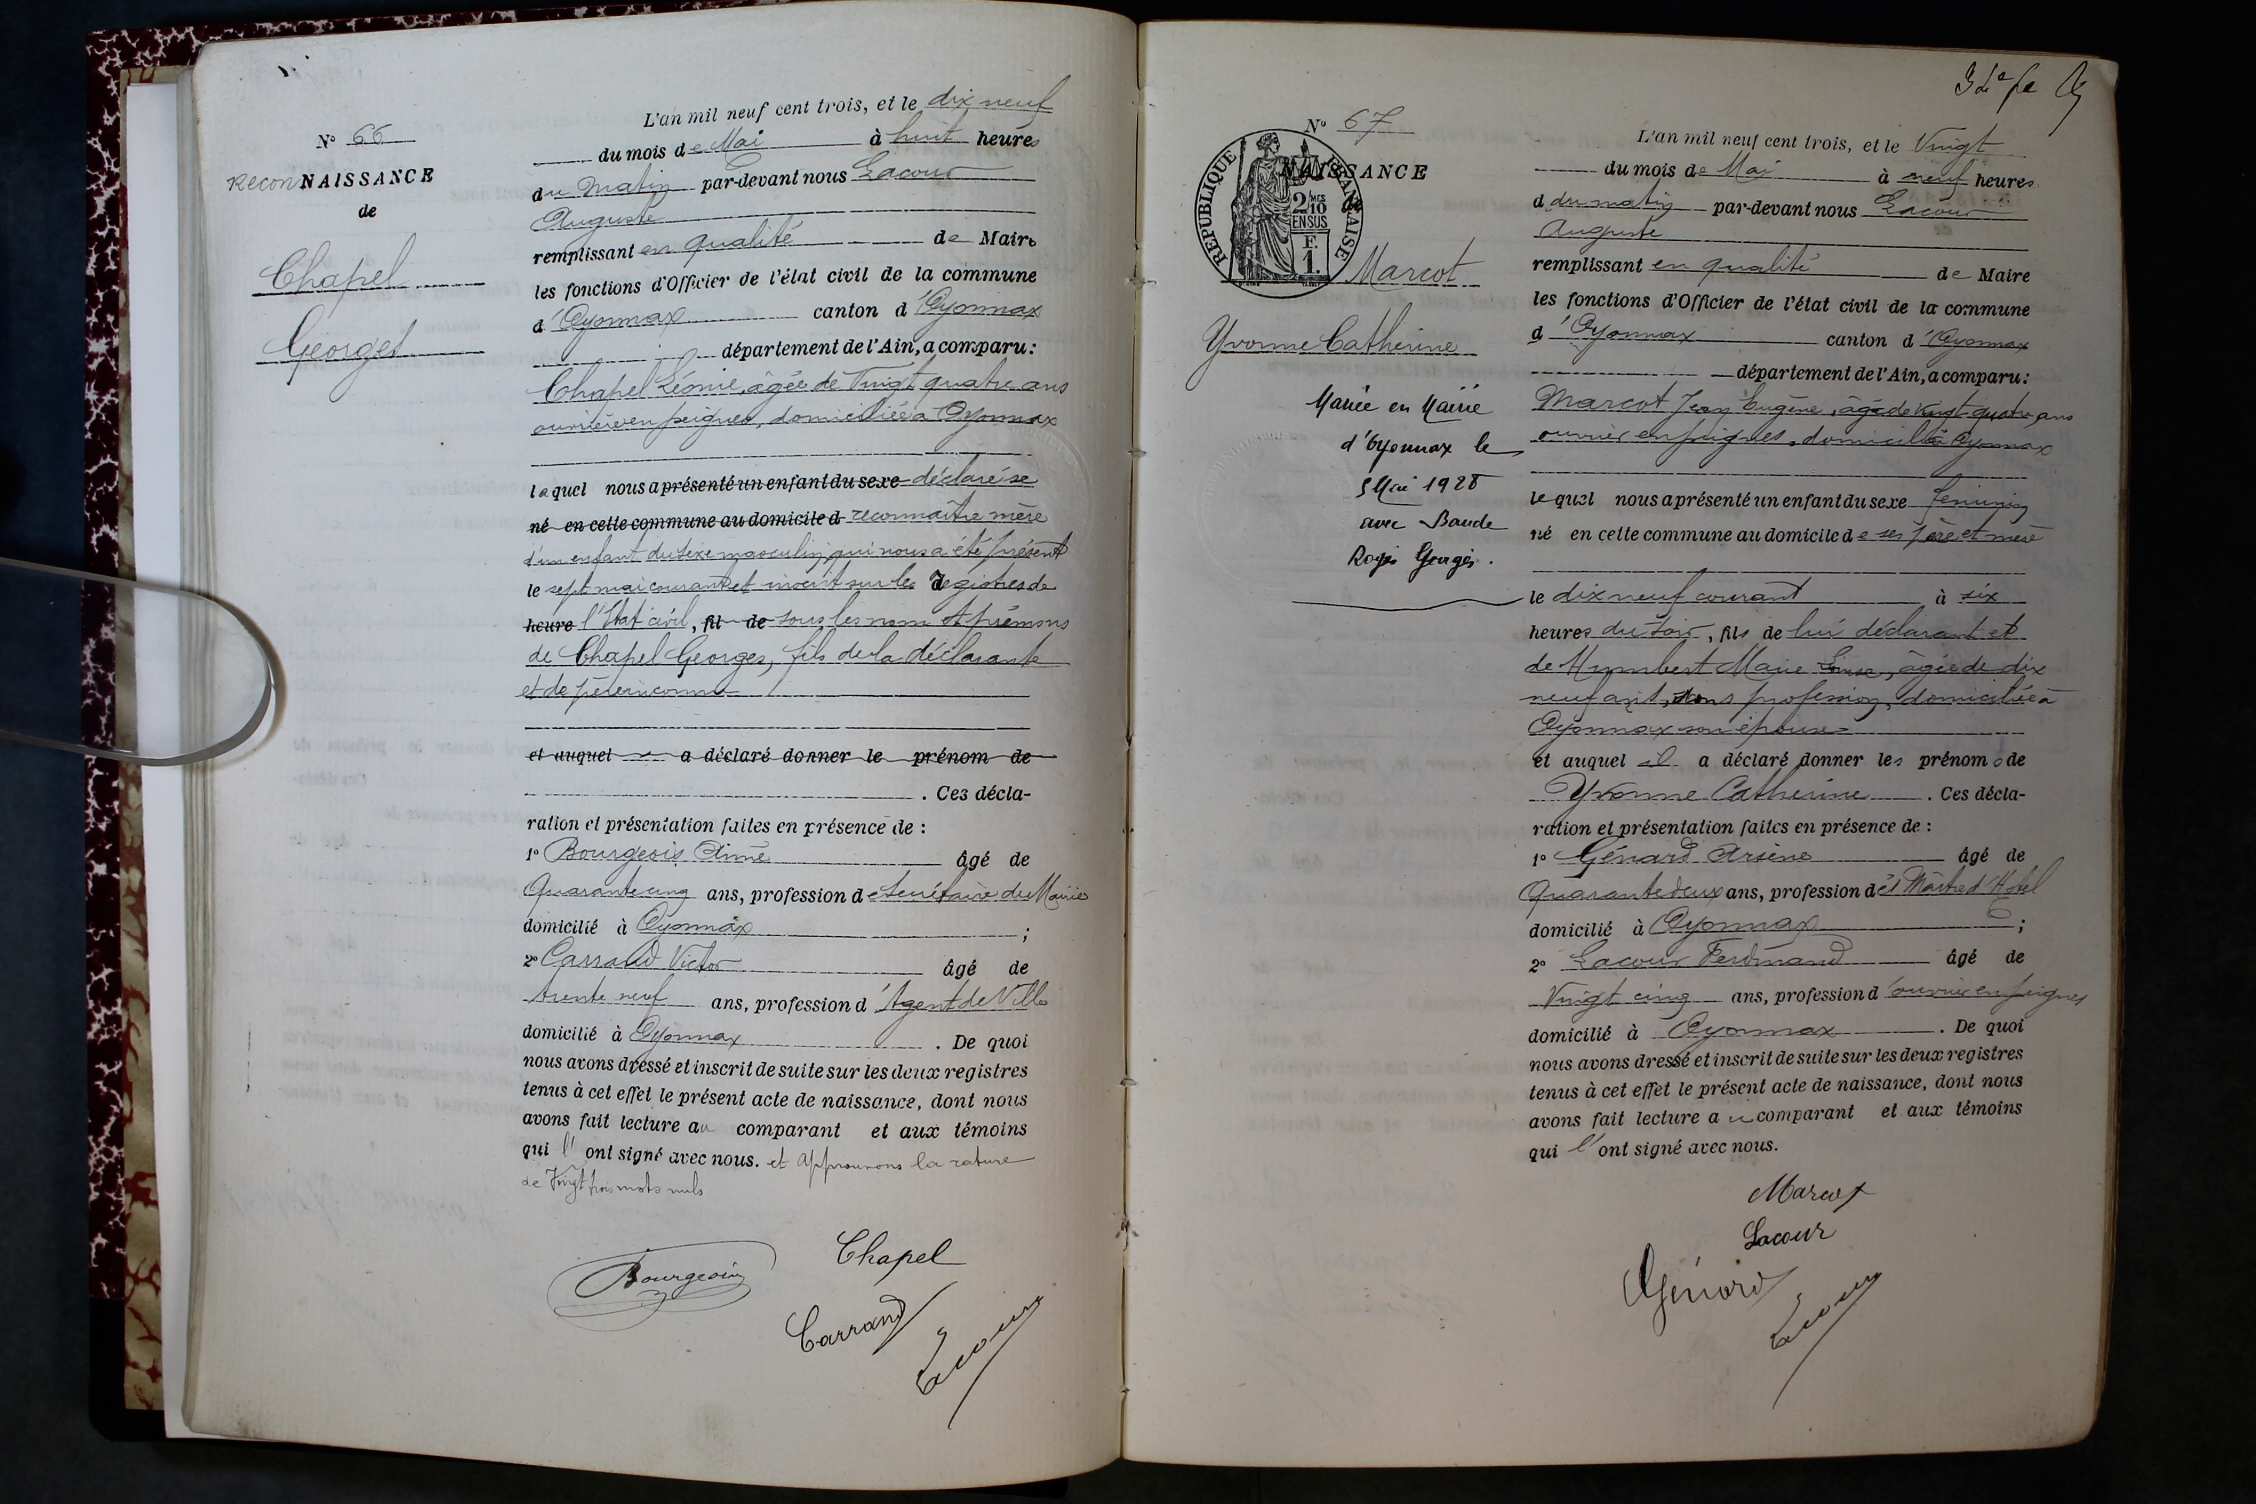 N° 66
reconNAISSANCE
de
Chapel
Georges
L'an mil neuf cent trois, et le dix neuf
du mois de Mai à huit heures
du matin par-devant nous Lacour
Auguste
remplissant en qualité de Maire
les fonctions d'Officier de l'état civil de la commune
d'Oyonnax canton d'Oyonnax
département de l'Ain, a comparu :
Chapel Léonie, âgée de Vingt quatre ans
ouvrière en peignes, domiciliée à Oyonnax
laquel nous a présenté un enfant du sexe déclare se
né en cette commune au domicile d reconnaître mère
d'un enfant du sexe masculin, qui nous a été présenté
le sept mai courant et inscrit sur les registres de
heure l'Etat civil, fil de sous les nom et prénoms
de Chapel Georges, fils de la déclarante
et de père inconnu
et auquel a déclaré donner le prénom de
. Ces décla-
ration et présentation faites en présence de :
1° Bourgeois Aimé âgé de
Quarante cinq ans, profession de Secrétaire de Mairie
domicilié à Oyonnax ;
2° Carrand Victor âgé de
trente neuf ans, profession d'Agent de Ville
domicilié à Oyonnax . De quoi
nous avons dressé et inscrit de suite sur les deux registres
tenus à cet effet le présent acte de naissance, dont nous
avons fait lecture au comparant et aux témoins
qui l'ont signé avec nous. et approuvons la rature
de Vingt trois mots nuls
Chapel
Bourgeois
Carrand
Lacour
N° 67
NAISSANCE
de
REPUBLIQUE FRANÇAISE
2/10
EN SUS
F.
1.
Marcot
Yvonne Catherine
Mariée en Mairie
d'Oyonnax le
5 Mai 1928
avec Baude
Roger Georges.
L'an mil neuf cent trois, et le Vingt
du mois de Mai à neuf heures
d du matin par-devant nous Lacour
Auguste
remplissant en qualité de Maire
les fonctions d'Officier de l'état civil de la commune
d'Oyonnax canton d'Oyonnax
département de l'Ain, a comparu :
Marcot Jean Eugène, âgé de Vingt quatre ans
ouvrier en peignes, domicilié à Oyonnax
lequel nous a présenté un enfant du sexe feminin
né en cette commune au domicile de ses père et mère
le dix neuf courant à six
heures du soir, fils de lui déclarant et
de Humbert Marie Louise, âgée de dix
neuf ans, sans profession, domiciliée à
Oyonnax son épouse
et auquel il a déclaré donner les prénoms de
Yvonne Catherine . Ces décla-
ration et présentation faites en présence de :
1° Génard Arsène âgé de
Quarante deux ans, profession de Maître d'Hotel
domicilié à Oyonnax ;
2° Lacour Ferdinand âgé de
Vingt cinq ans, profession d'ouvrier en peignes
domicilié à Oyonnax . De quoi
nous avons dressé et inscrit de suite sur les deux registres
tenus à cet effet le présent acte de naissance, dont nous
avons fait lecture au comparant et aux témoins
qui l'ont signé avec nous.
Marcot
Lacour
Génard
Lacour